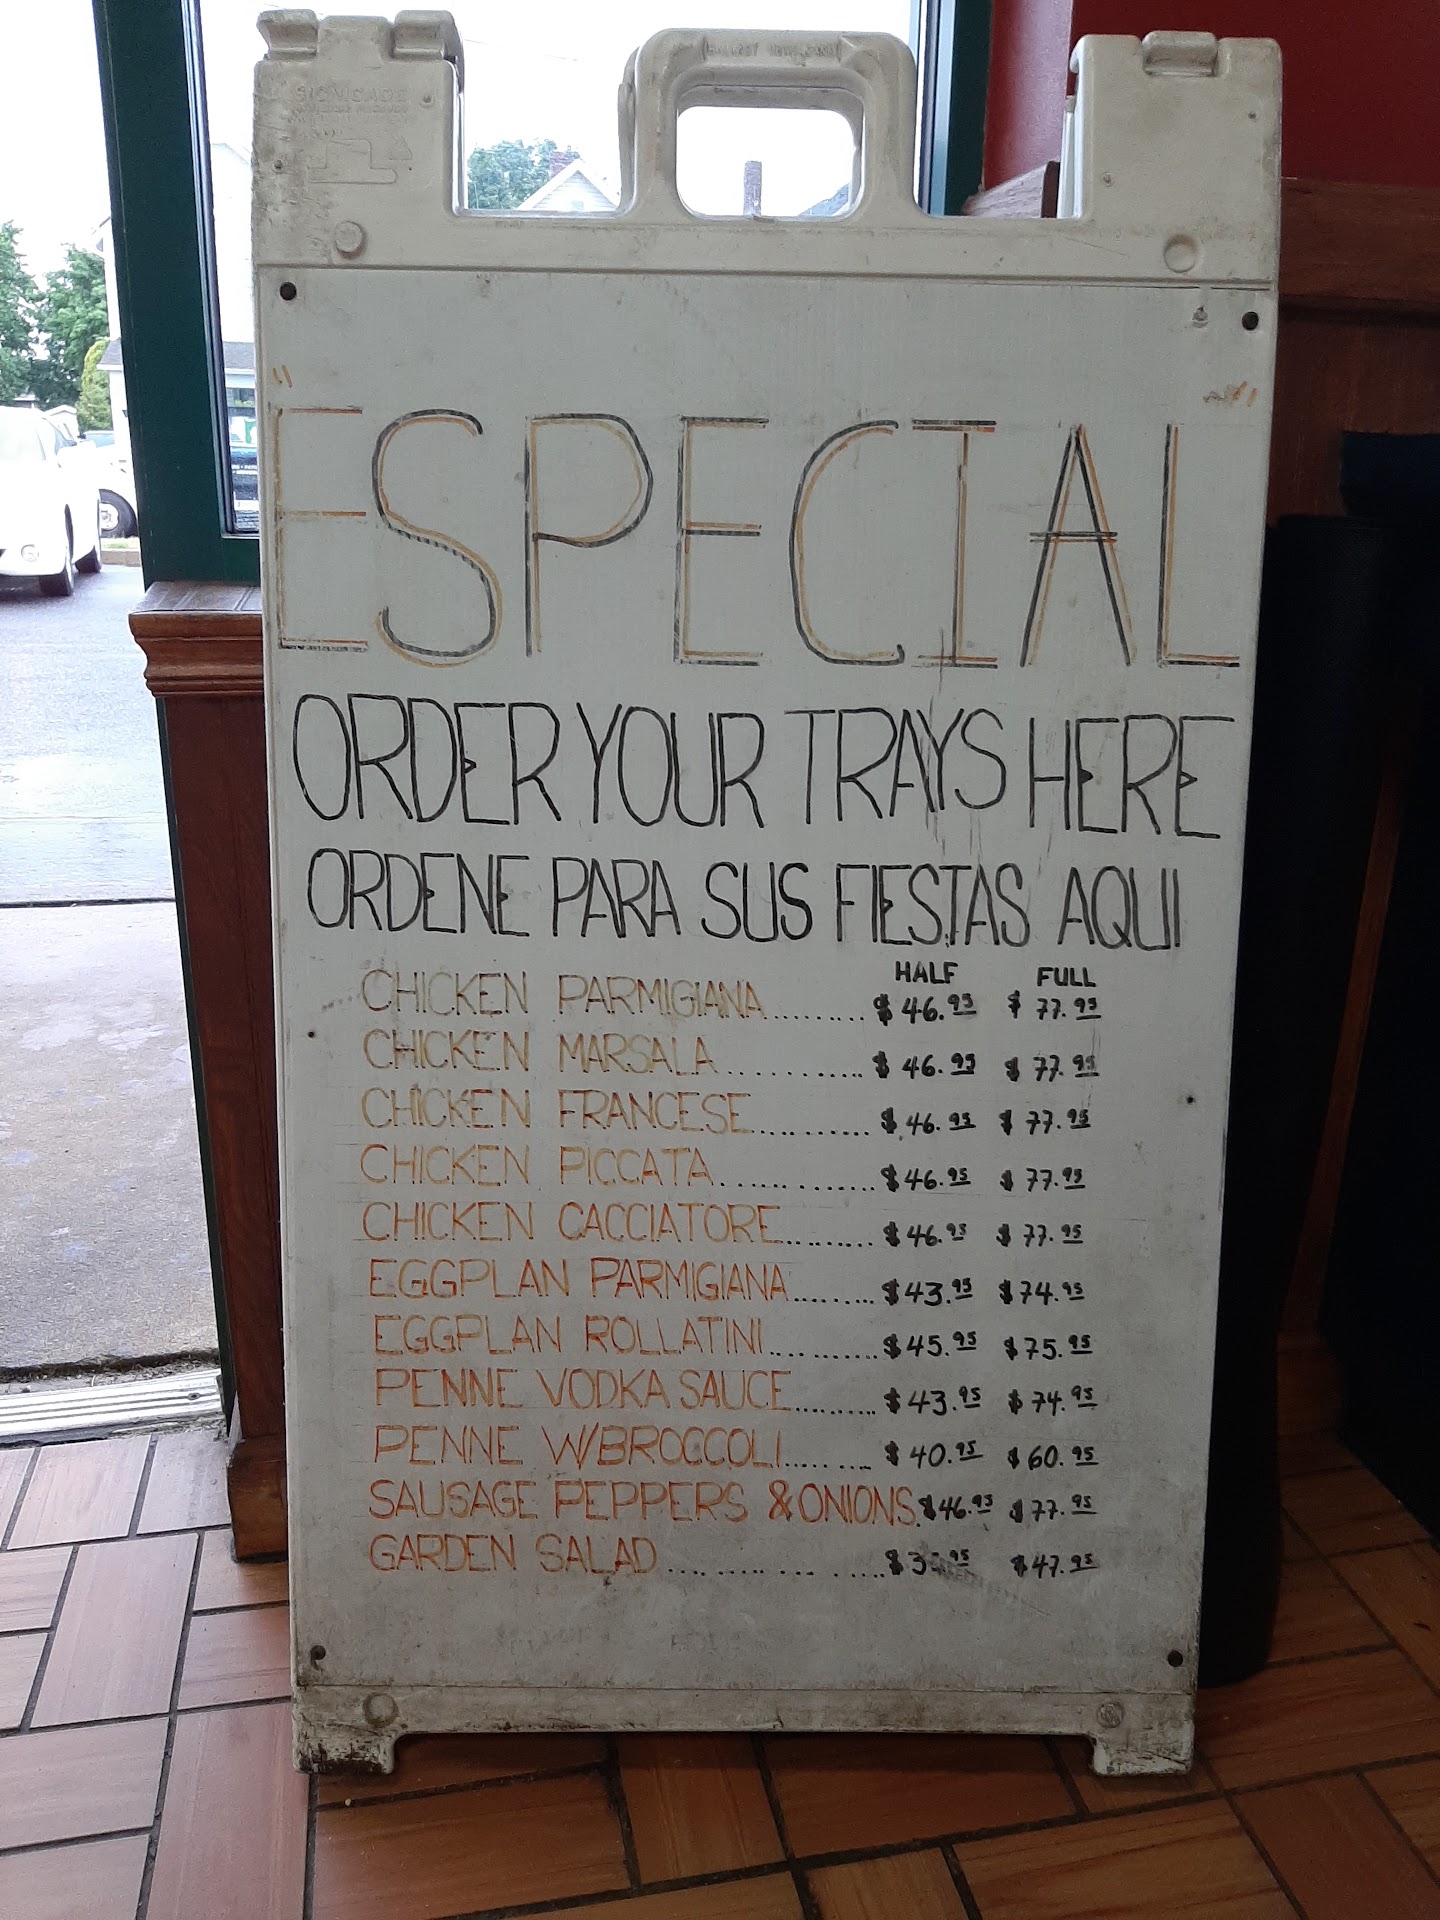 SIGNICADE
"ESPECIAL"
ORDER YOUR TRAYS HERE
ORDENE PARA SUS FIESTAS AQUI
HALF FULL
CHICKEN PARMIGIANA......... $46.95 $77.95
CHICKEN MARSALA............ $46.95 $77.95
CHICKEN FRANCESE........... $46.95 $77.95
CHICKEN PICCATA............. $46.95 $77.95
CHICKEN CACCIATORE......... $46.95 $77.95
EGGPLAN PARMIGIANA........ $43.95 $74.95
EGGPLAN ROLLATINI.......... $45.95 $75.95
PENNE VODKA SAUCE......... $43.95 $74.95
PENNE W/BROCCOLI......... $40.95 $60.95
SAUSAGE PEPPERS & ONIONS. $46.95 $77.95
GARDEN SALAD............... $47.95